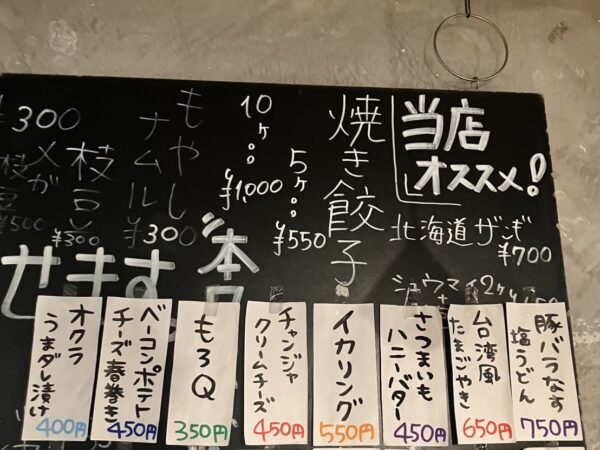 当店
オススメ!
北海道ザンギ
¥700
シュウマイ2ケ
焼き餃子
5ヶ。。
¥550
10ヶ。。
¥1,000
もやし
ナムル
¥300
枝豆
¥300
¥300
¥500
せます。
豚バラなす
塩うどん
750円
台湾風
たまごやき
650円
さつまいも
ハニーバター
450円
イカリング
550円
チャンジャ
クリームチーズ
450円
もろQ
350円
ベーコンポテト
チーズ春巻き
450円
オクラ
うまダレ漬け
400円